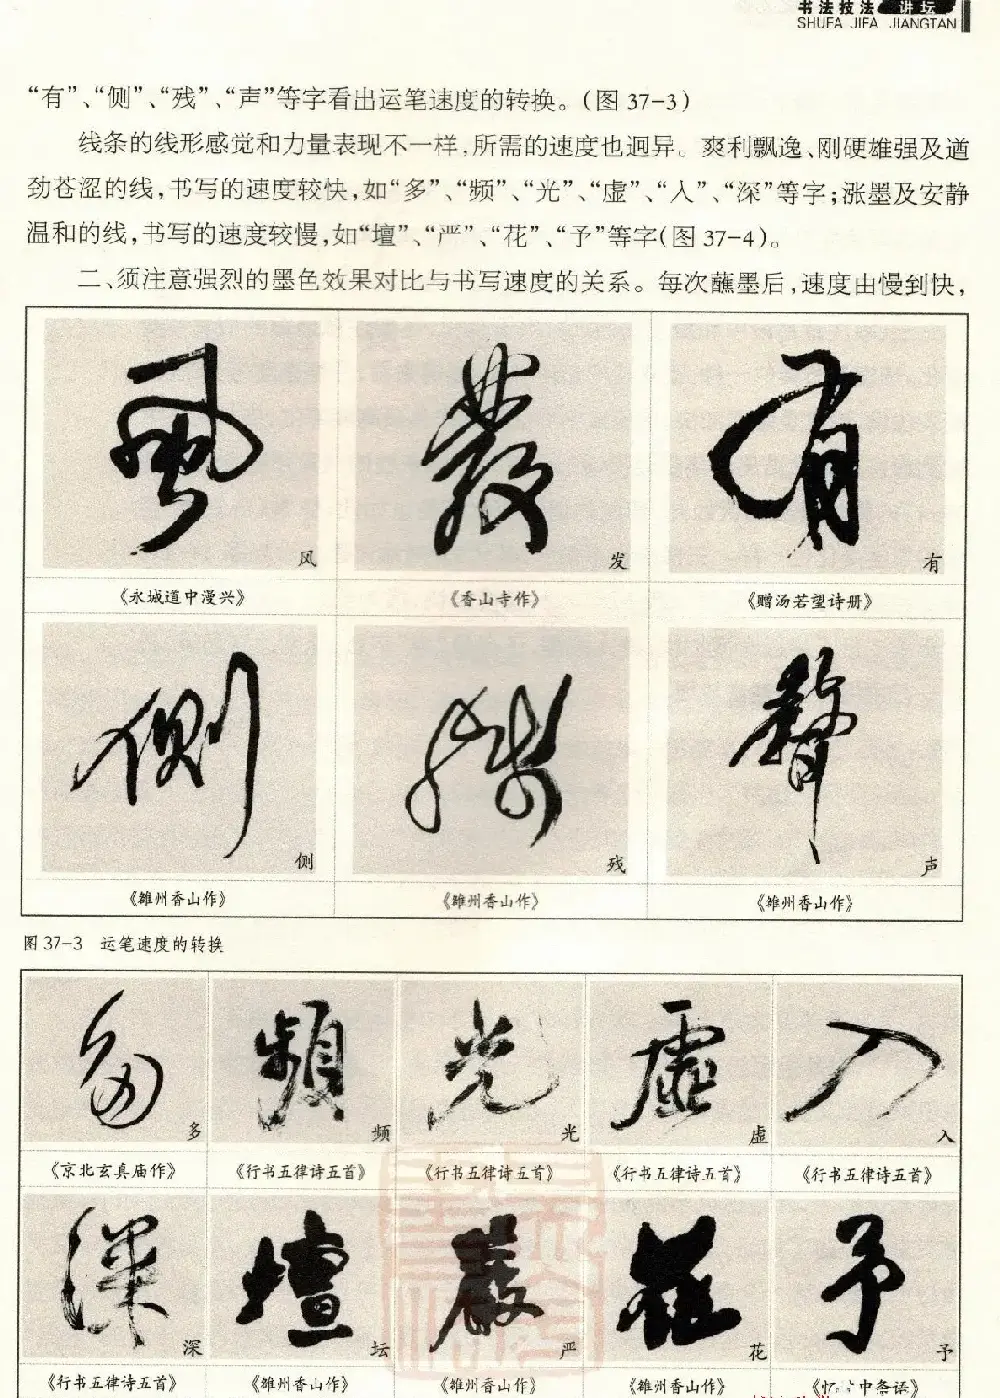 书法技法 讲坛
SHUFA JIFA JIANGTAN
“有”、“侧”、“残”、“声”等字看出运笔速度的转换。(图 37-3)
线条的线形感觉和力量表现不一样,所需的速度也迥异。爽利飘逸、刚硬雄强及遒
劲苍涩的线,书写的速度较快,如“多”、“频”、“光”、“虚”、“入”、“深”等字;涨墨及安静
温和的线,书写的速度较慢,如“壇”、“严”、“花”、“予”等字(图 37-4)。
二、须注意强烈的墨色效果对比与书写速度的关系。每次蘸墨后,速度由慢到快,
風 發 有
风 发 有
《永城道中漫兴》 《香山寺作》 《赠汤若望诗册》
側 殘 聲
侧 残 声
《雒州香山作》 《雒州香山作》 《雒州香山作》
图 37-3 运笔速度的转换
多 頻 光 虛 入
多 频 光 虚 入
《京北玄真庙作》 《行书五律诗五首》 《行书五律诗五首》 《行书五律诗五首》 《行书五律诗五首》
深 壇 嚴 花 予
深 坛 严 花 予
《行书五律诗五首》 《雒州香山作》 《雒州香山作》 《雒州香山作》